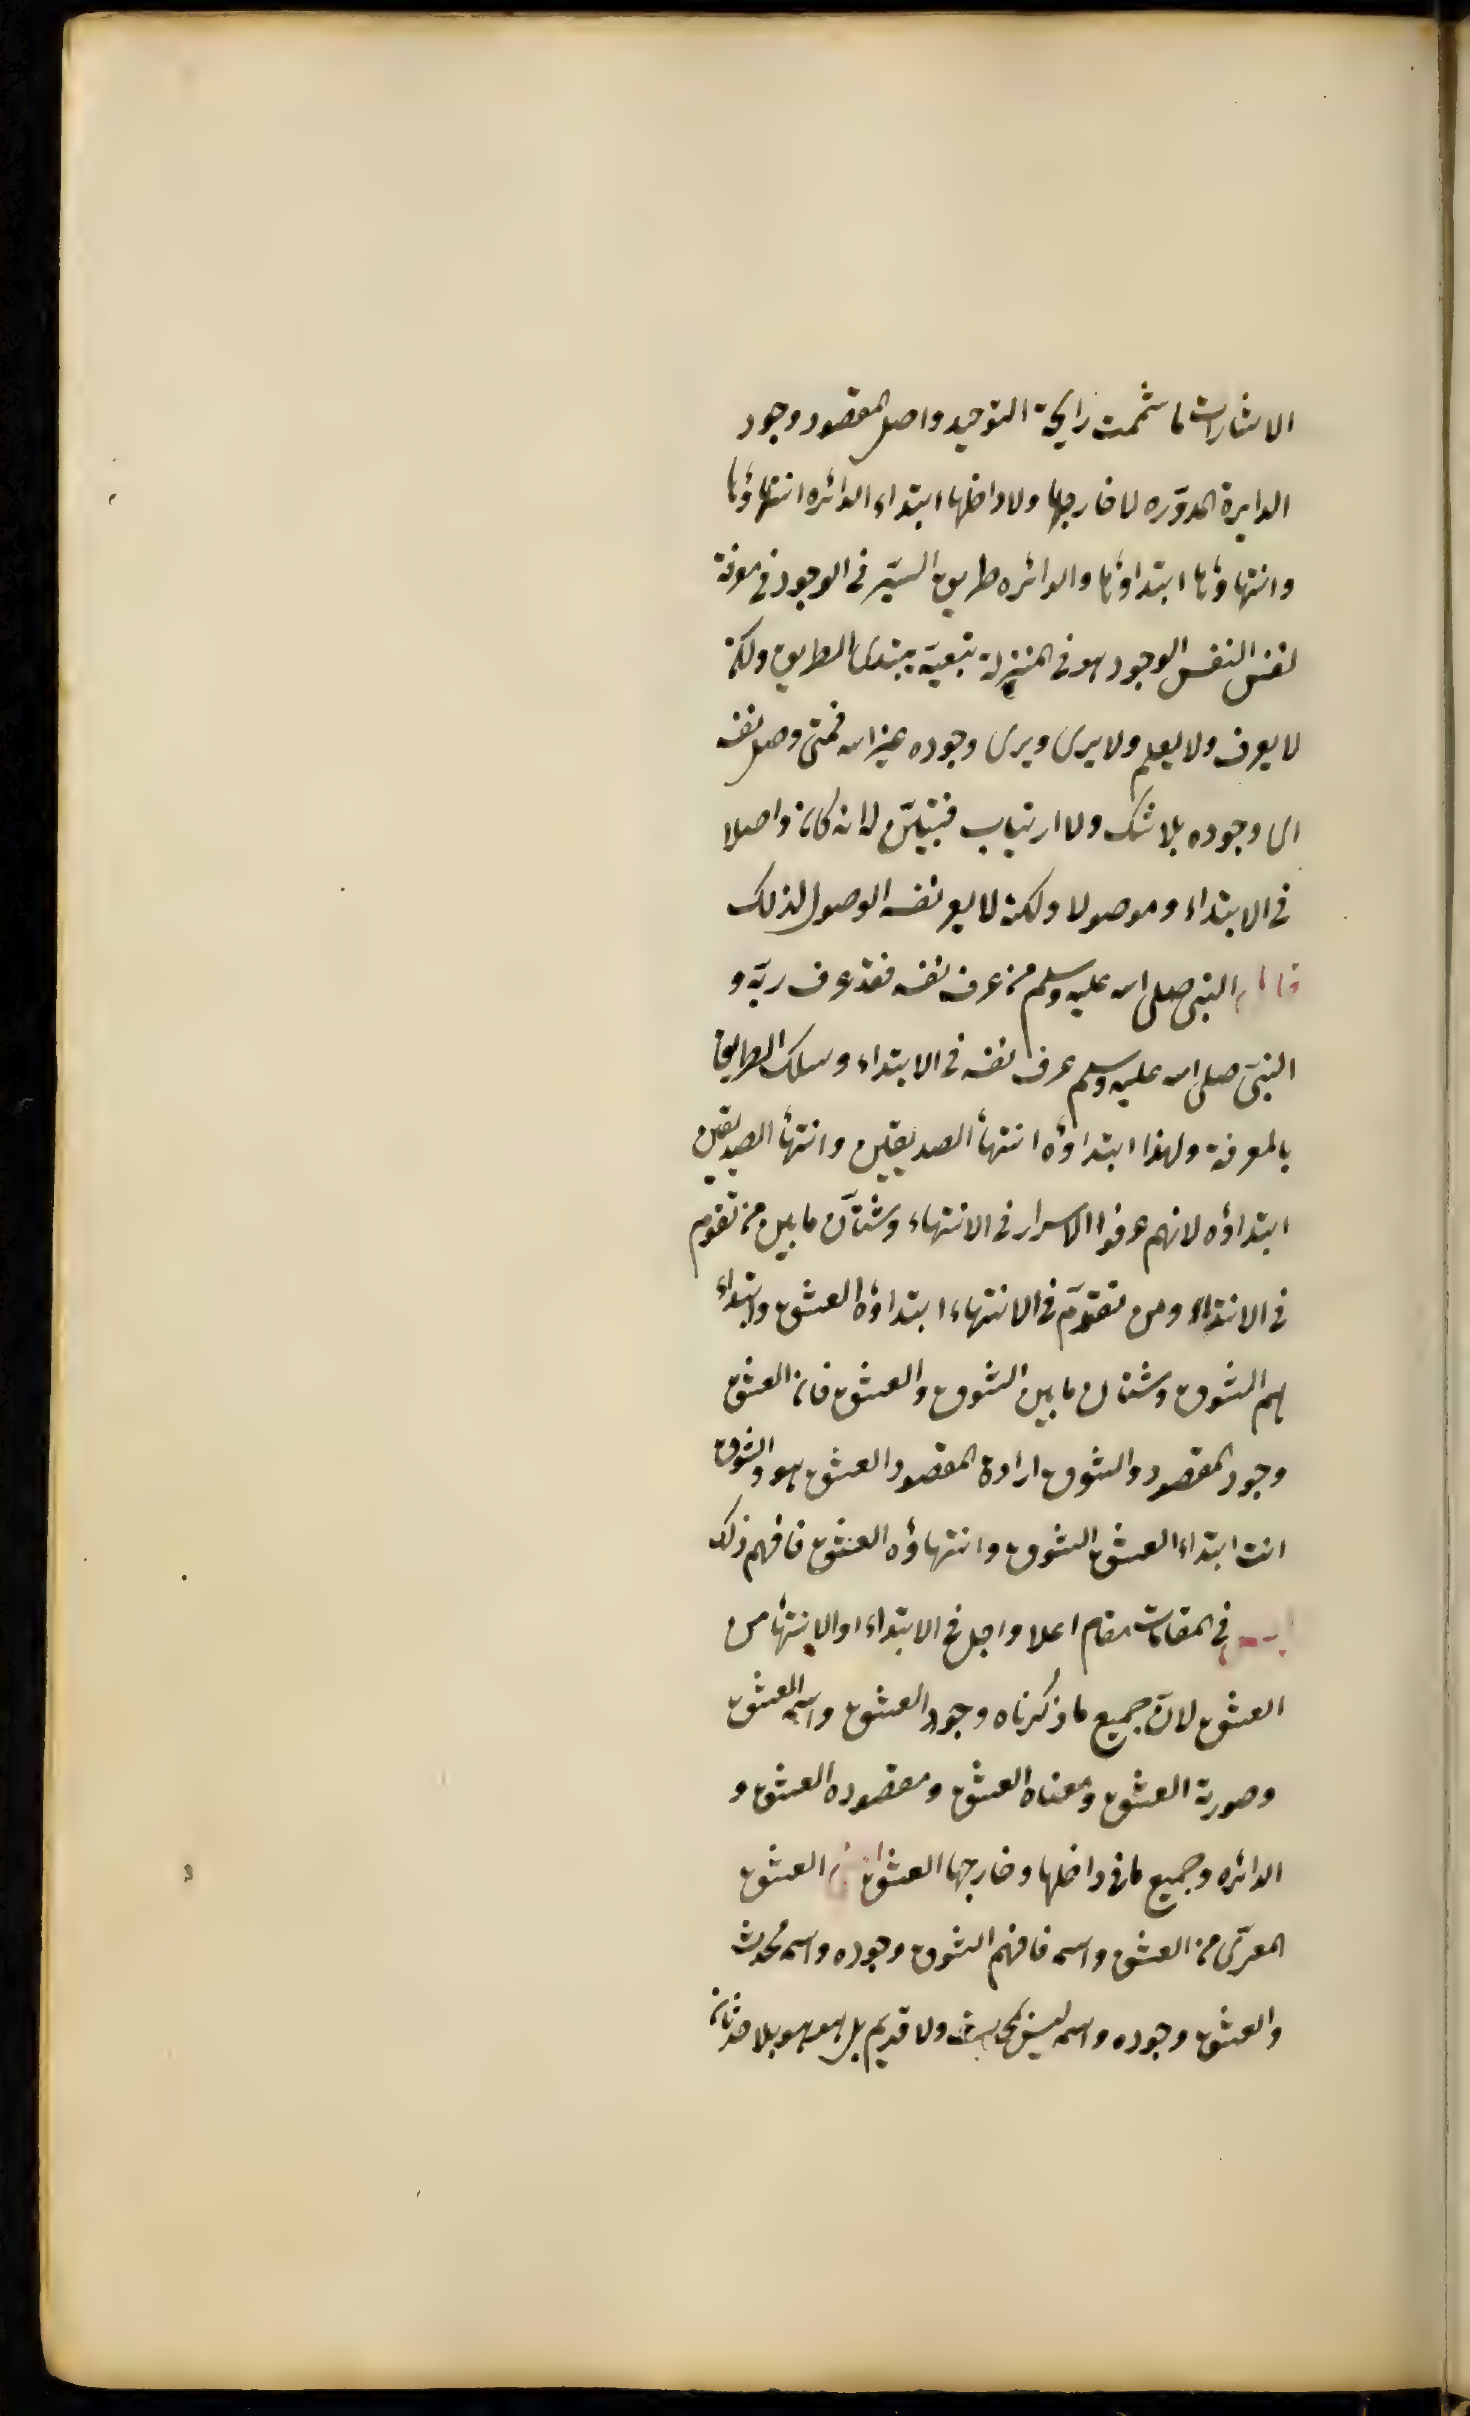 الاشارات ما شممت رايحة التوحيد واصل المقصود وجود
الدايرة المدوّره لا خارجها ولا داخلها ابتداء الدائره انتهاؤها
وانتهاؤها ابتداؤها والدائره طريق السيّر فى الوجود فى معرفة
لنفس النفس الوجود هو فى المنزلة بتبعيّة يبتدى الطريق ولكنه
لا يعرف ولا يعلم ولا يرى ويرى وجوده غير الله فمتى وصل نفسه
الى وجوده بلا شك ولا ارتياب فيتبيّن له انه كان واصلا
فى الابتداء وموصولا ولكنه لا يعرفه الوصول لذلك
قال النبى صلى الله عليه وسلم من عرف نفسه فقد عرف ربّه و
النبىّ صلى الله عليه وسلم عرف نفسه فى الابتداء وسلك الطريق
بالمعرفة ولهذا ابتداؤه انتهأ الصديقين وانتهأ الصديقين
ابتداؤه لانهم عرفوا الاسرار فى الانتهاء وشتّان ما بين من تقوم
فى الابتداء ومن تقدّم فى الانتهاء ابتداؤه العشق وابتداء
هم الشوق وشتان ما بين الشوق والعشق فان العشق
وجود المقصود والشوق ارادة المقصود العشق هو والشوق
انت ابتداء العشق الشوق وانتهاؤه العشق فافهم ذلك
ليس فى المقامات مقام اعلا واجل فى الابتداء او الانتهأ من
العشق لانّ جميع ما ذكرناه وجود العشق واسم العشق
وصورة العشق ومعناه العشق ومقصوده العشق و
الدائره وجميع ما فى داخلها وخارجها العشق العشق
المعرّى من العشق واسمه فافهم الشوق وجوده واسمه محدث
والعشق وجوده واسمه ليس بمحدث ولا قديم بل هو هو بلا حدثان